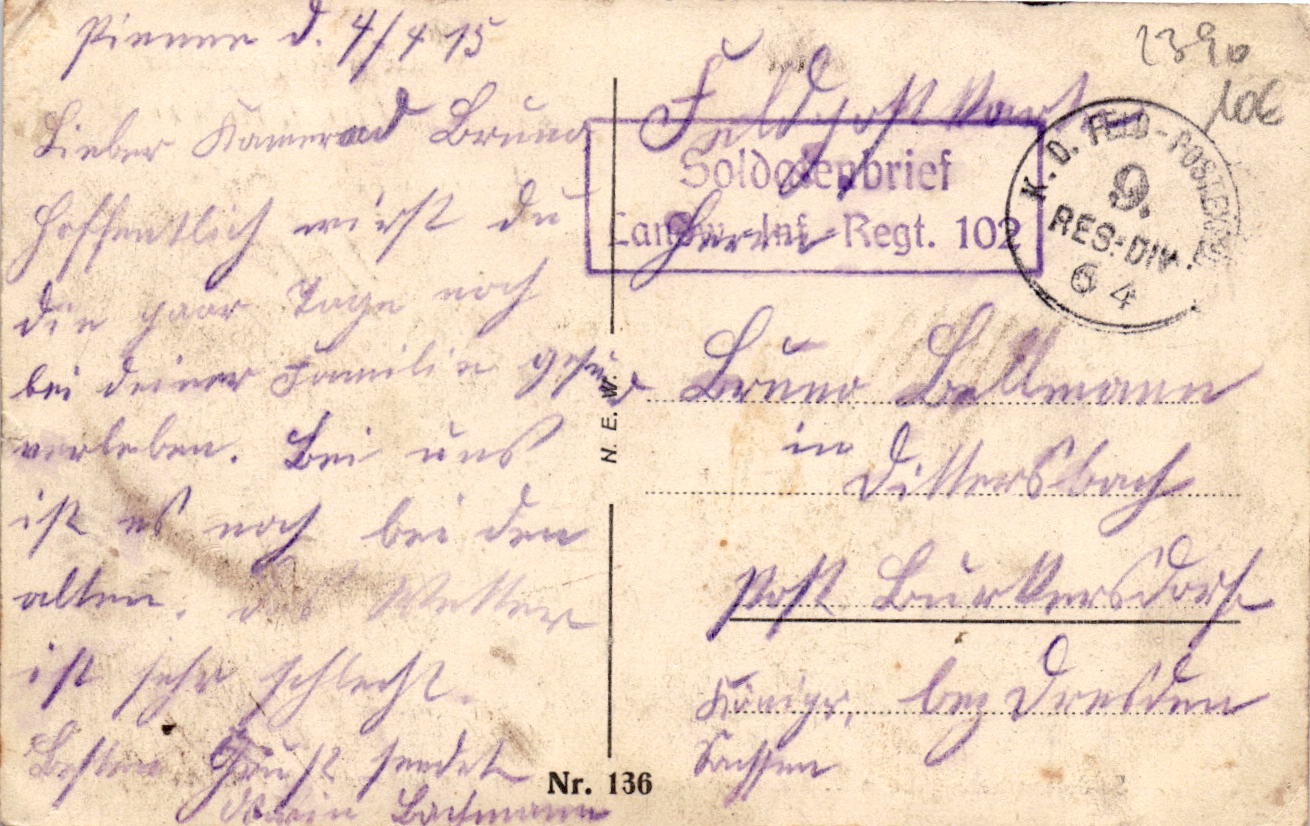 Pienne d. 4/4 15
Lieber Kamerad Bruno
Hoffentlich wirst du
die paar Tage noch
bei deiner Familie gesund
verleben. Bei uns
ist es noch bei den
alten. das Wetter
ist sehr schlecht.
Besten Gruß sendet
Bachmann
Feldpostkart
Soldatenbrief
Landw.-Inf.-Regt. 102
Herrn
K. D. FELD-POSTEXP.
9.
RES.-DIV.
64
2390
10€
Bruno Bellmann
in
Dittersbach
Post Burkersdorf
Königr. bez Dresden
Sachsen
N. E. W.
Nr. 136